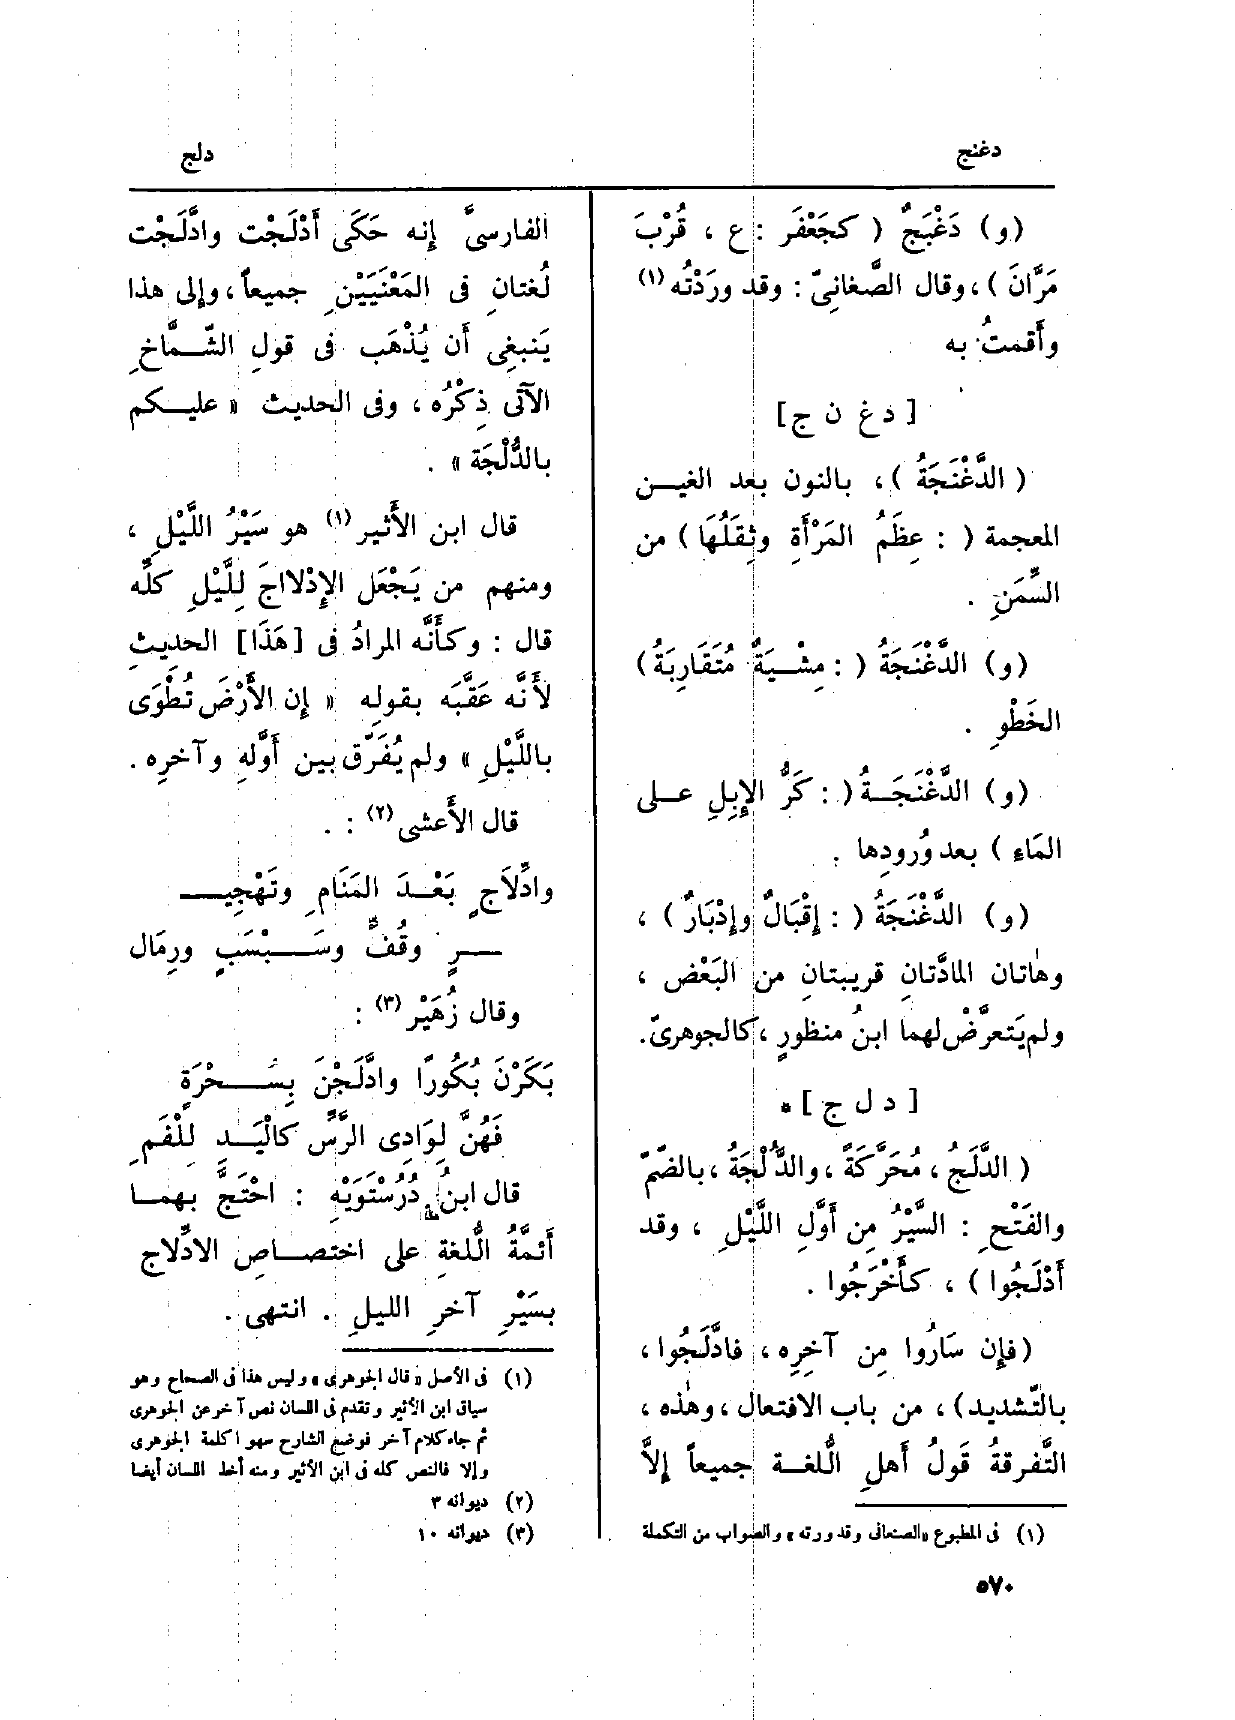 دغنج
دلج
(و) دَغْبَجٌ ( كجَعْفَر : ع ، قُرْبَ
مَرَّانَ ) ، وقال الصَّغانِىّ : وقد ورَدْتُه (١)
وأَقمتُ به
[ دغ ن ج ]
( الدَّغْنَجَةُ ) ، بالنون بعد الغيـن
المعجمة ( : عِظَمُ المَرْأَةِ وثِقَلُهَا ) من
السِّمَنِ .
(و) الدَّغْنَجَةُ ( : مِشْـيَةٌ مُتَقَارِبَةُ )
الخَطْوِ .
(و) الدَّغْنَجَــةُ ( : كَرُّ الإِبِلِ علـى
المَاءِ ) بعد وُرودِها .
(و) الدَّغْنَجَةُ ( : إِقْبَالٌ وإِدْبَارٌ ) ،
وهٰاتان المادَّتانِ قريبتانِ من البَعْض ،
ولم يَتعرَّضْ لهما ابنُ منظورٍ ، كالجوهرىّ .
[ د ل ج ] *
( الدَّلَجُ ، مُحَرَّكَةً ، والدُّلْجَةُ ، بالضّمّ
والفَتْحِ : السَّيْرُ مِن أَوَّلِ اللَّيْلِ ، وقد
أَدْلَجُوا ) ، كأَخْرَجُوا .
(فإِن سَارُوا مِن آخِرِه ، فادَّلَجُوا ،
بالتّشديد) ، من باب الافتعال ، وهٰذه ،
التَّفرقةُ قَولُ أَهلِ اللُّغـة جميعاً إِلاَّ
(١) فى المطبوع «الصنعانى وقد ورته» والصواب من التكملة
الفارسىَّ إِنه حَكَى أَدْلَجْت وادَّلَجْت
لُغتانِ فى المَعْنَيَيْنِ جميعاً ، وإِلى هذا
يَنبغِى أَن يُذْهَب فى قولِ الشَّـمَّاخِ
الآتى ذِكْرُه ، وفى الحديث « عليـكم
بالدُّلْجَة » .
قال ابن الأَثير (١) هو سَيْرُ اللَّيْلِ ،
ومنهم من يَجْعَل الإِدْلاجَ لِلَّيْلِ كلِّه
قال : وكأَنَّه المرادُ فى [هَذَا] الحديثِ
لأَنَّه عَقَّبَه بقوله « إِن الأَرْضَ تُطْوَى
باللَّيْلِ » ولم يُفَرَّق بين أَوَّلهِ وآخرِه .
قال الأَعشى (٢) : .
وادِّلاَجٍ بَعْـدَ المَنَامِ وتَهْجِيـــ
ــرٍ وقُفٍّ وسَــبْسَبٍ ورِمَال
وقال زُهَيْر (٣) :
بَكَرْنَ بُكُورًا وادَّلَجْنَ بِسُــحْرَةٍ
فَهُنَّ لِوَادِى الرَّسِّ كالْيَـدِ للْفَمِ
قال ابنُ دُرُسْتَوَيْهِ : احْتَجَّ بهمـا
أَئمَّةُ اللُّغةِ على اختصـاصِ الادِّلاج
بسَيْرِ آخرِ الليلِ . انتهى .
(١) فى الأصل « قال الجوهرى » وليس هذا فى الصحاح وهو
سياق ابن الأثير وتقدم فى اللسان نص آخر عن الجوهرى
ثم جاء كلام آخر فوضع الشارح سهوا كلمة الجوهرى
وإلا فالنص كله فى ابن الأثير ومنه أخذ اللسان أيضا
(٢) ديوانه ٣
(٣) ديوانه ١٠
٥٧٠